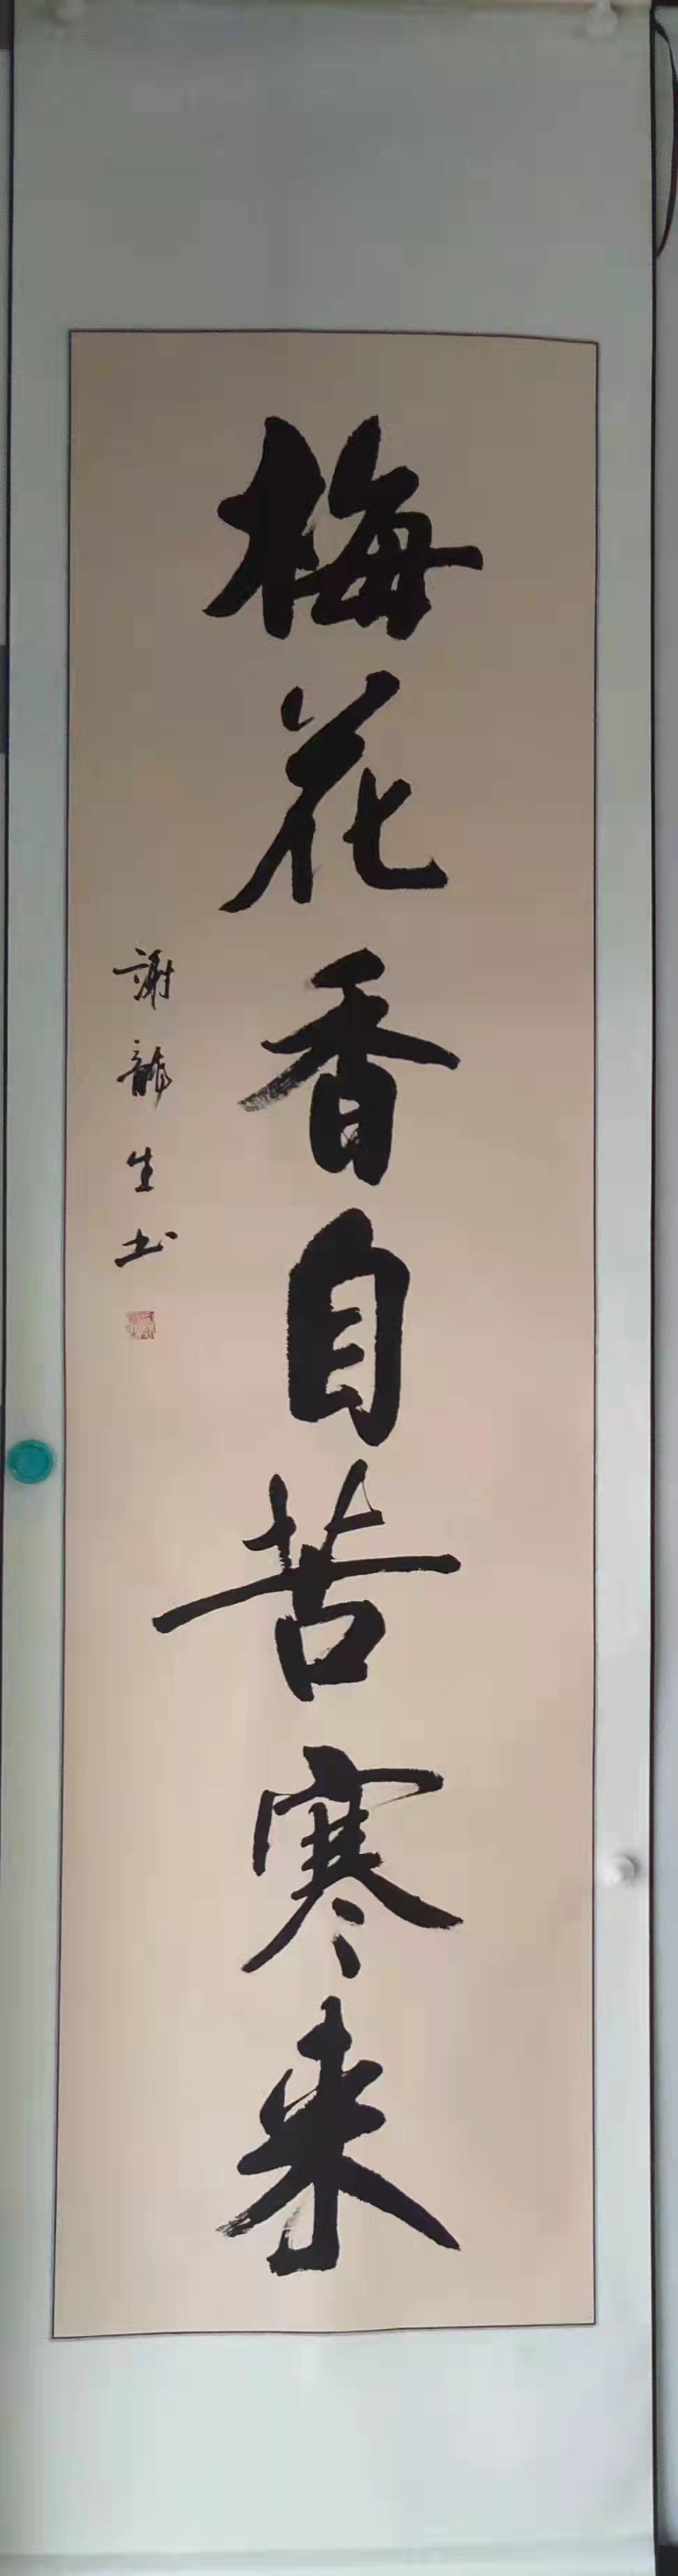 梅花香自苦寒来
谢龍生书